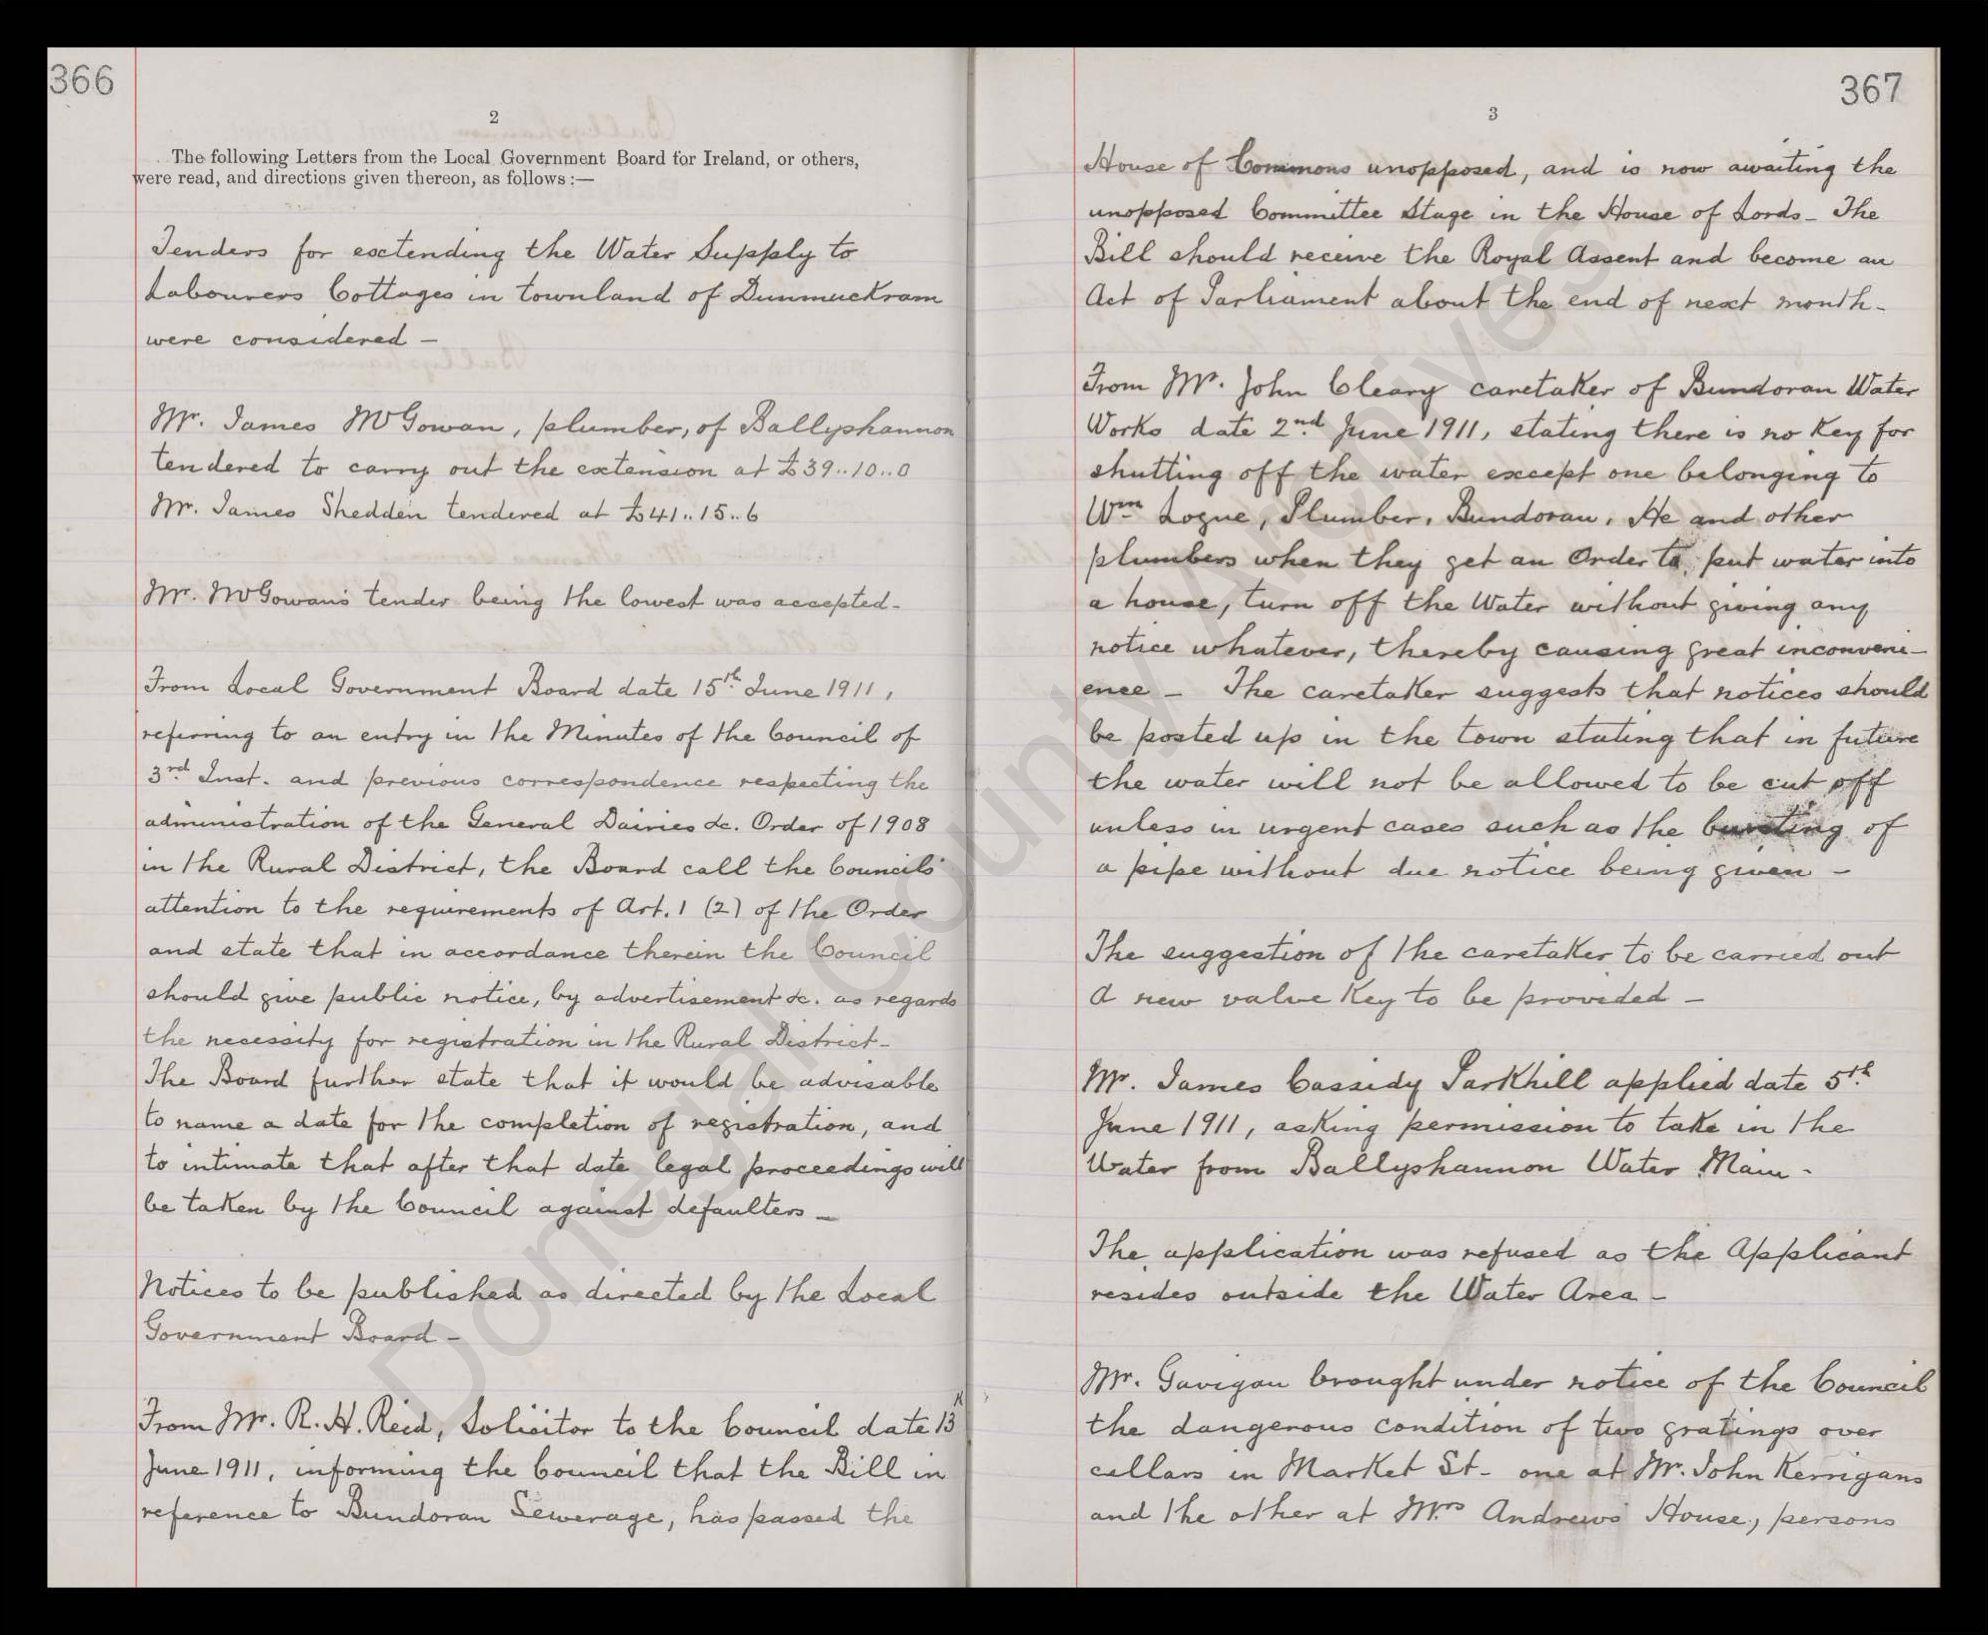 366
2
The following Letters from the Local Government Board for Ireland, or others,
were read, and directions given thereon, as follows :—
Tenders for extending the Water Supply to
Labourers Cottages in townland of Dunmuckram
were considered —
Mr. James McGowan, plumber, of Ballyshannon
tendered to carry out the extension at £39..10..0
Mr. James Shedden tendered at £41..15..6
Mr. McGowan's tender being the lowest was accepted-
From Local Government Board date 15th June 1911,
referring to an entry in the Minutes of the Council of
3rd Inst. and previous correspondence respecting the
administration of the General Dairies &c. Order of 1908
in the Rural District, the Board call the Councils
attention to the requirements of Art. 1 (2) of the Order
and state that in accordance therein the Council
should give public notice, by advertisement &c. as regards
the necessity for registration in the Rural District-
The Board further state that it would be advisable
to name a date for the completion of registration, and
to intimate that after that date legal proceedings will
be taken by the Council against defaulters —
Notices to be published as directed by the Local
Government Board —
From Mr. R. H. Reid, Solicitor to the Council date 13th
June 1911, informing the Council that the Bill in
reference to Bundoran Sewerage, has passed the
367
3
House of Commons unopposed, and is now awaiting the
unopposed Committee Stage in the House of Lords- The
Bill should receive the Royal Assent and become an
Act of Parliament about the end of next month-
From Mr. John Cleary caretaker of Bundoran Water
Works date 2nd June 1911, stating there is no key for
shutting off the water except one belonging to
Wm Logue, Plumber, Bundoran, He and other
plumbers when they get an Order to put water into
a house, turn off the Water without giving any
notice whatever, thereby causing great inconveni-
ence — The caretaker suggests that notices should
be posted up in the town stating that in future
the water will not be allowed to be cut off
unless in urgent cases such as the bursting of
a pipe without due notice being given —
The suggestion of the caretaker to be carried out
A new valve key to be provided —
Mr. James Cassidy Parkhill applied date 5th
June 1911, asking permission to take in the
Water from Ballyshannon Water Main-
The application was refused as the Applicant
resides outside the Water Area —
Mr. Gavigan brought under notice of the Council
the dangerous condition of two gratings over
cellars in Market St- one at Mr. John Kerrigans
and the other at Mrs Andrews' House, persons
Donegal County Archives